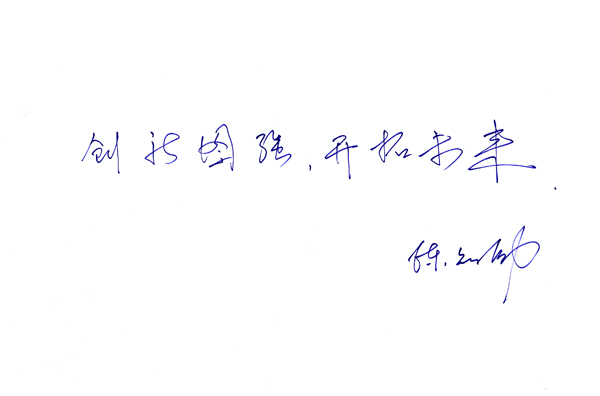 创新图强，开拓未来
陈